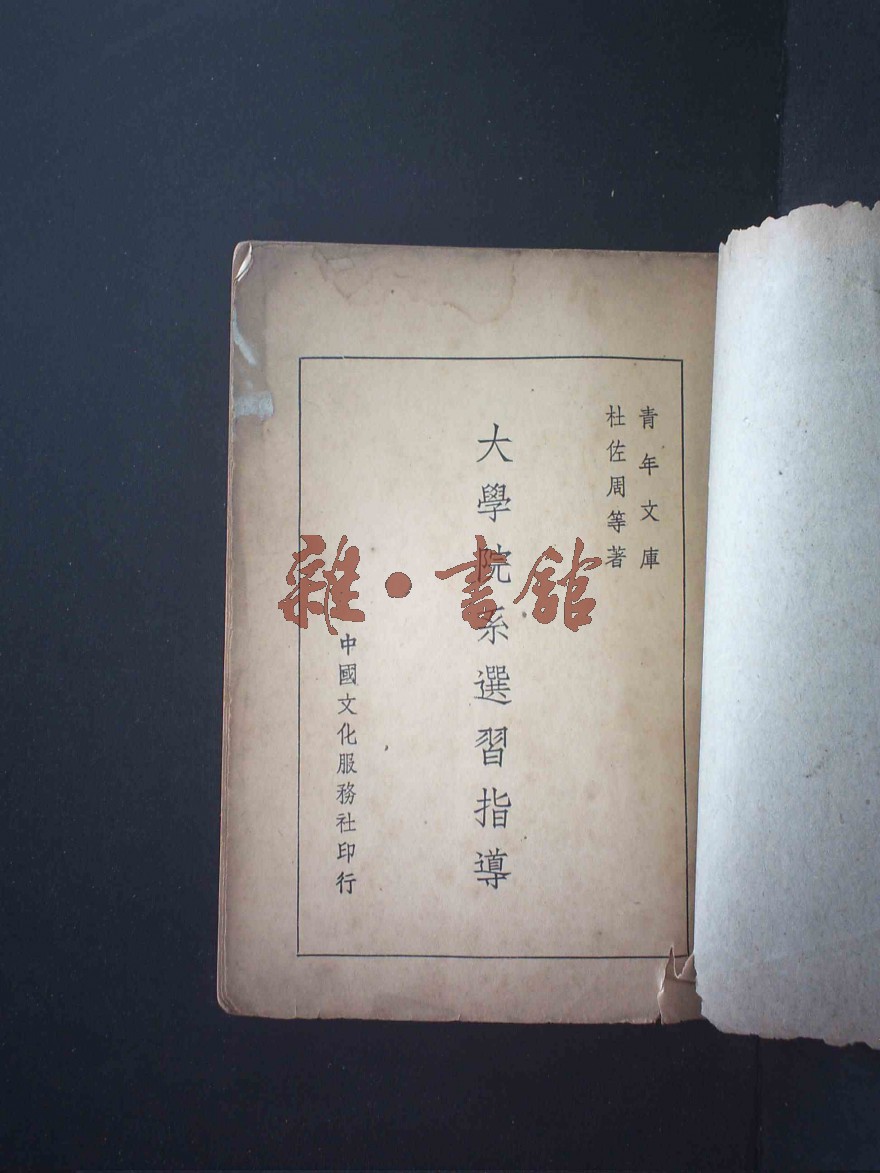 青年文庫
杜佐周等著
大學院系選習指導
中國文化服務社印行
雜·書館